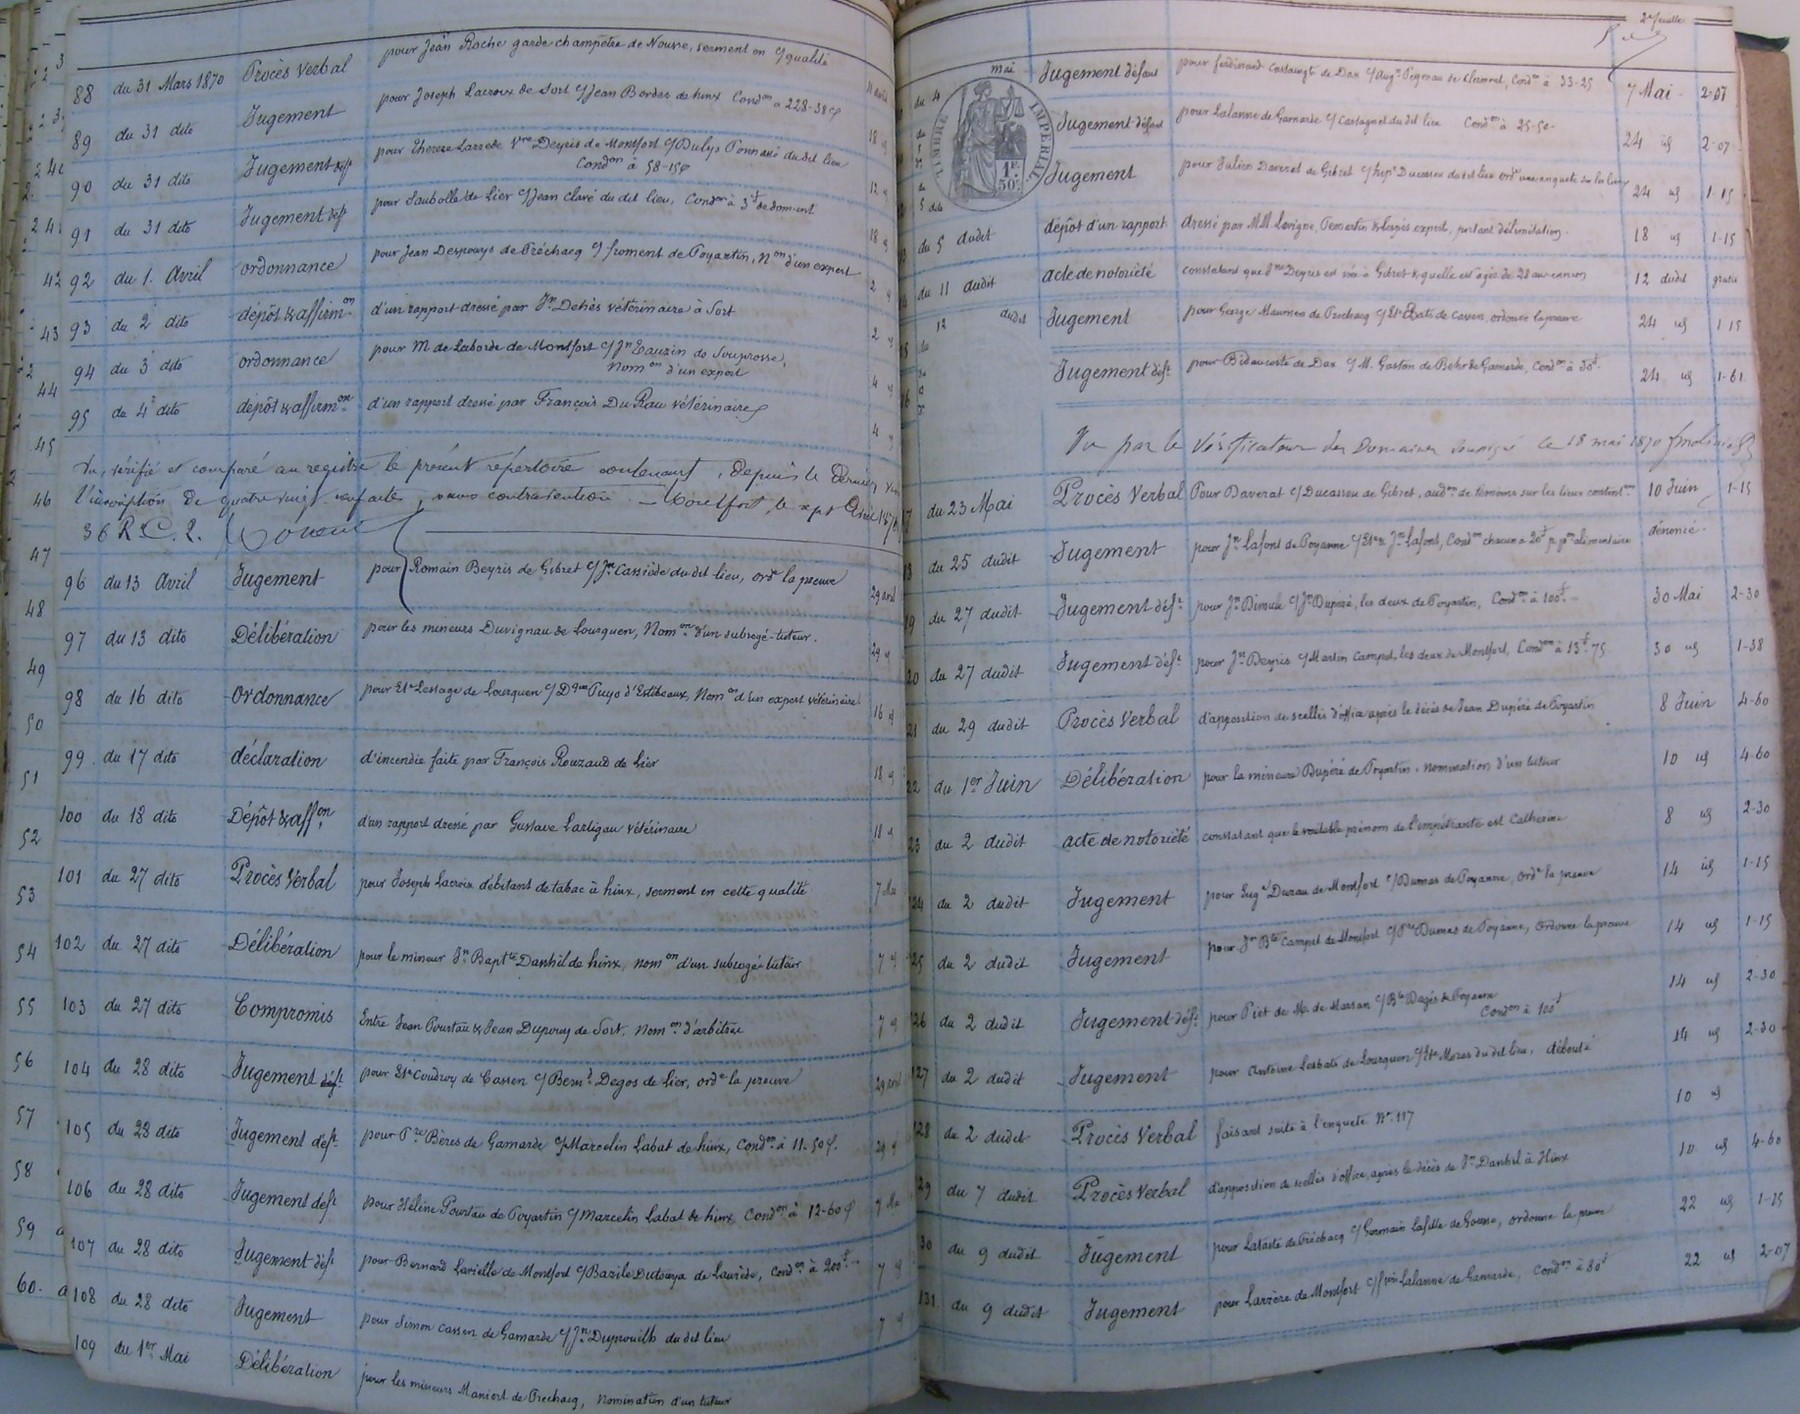 88 du 31 Mars 1870 Procès Verbal pour Jean Roche garde champêtre de Nousse, serment en qualité
89 du 31 dito Jugement pour Joseph Lacroix de Sort c/ Jean Bordes de hinx Cond.on à 228-38
90 du 31 dito Jugement déft pour Therese Larrede Vve Deyris de Montfort c/ du dit lieu 12
Cond.on à 58-15
91 du 31 dito Jugement déft pour Saubolle de Lier c/ Jean Claré du dit lieu, Cond.on à 3f de dom. int 18
92 du 1. Avril ordonnance pour Jean Despouys de Préchacq c/ froment de Poyartin, N.on d'un expert 2
93 du 2 dito dépôt & affirm.on d'un rapport dressé par Jn Dehès vétérinaire à Sort 2
94 du 3 dito ordonnance pour M. de Laborde de Montfort c/ Jn Cauzin de Souprosse, 4
Nom.on d'un expert
95 du 4 dito dépôt & affirm.on d'un rapport dressé par François Du Rau vétérinaire 4
Vu, vérifié et comparé au registre le présent répertoire contenant, depuis le dernier
l'inscription de quatre vingt actes, sans contravention. — Montfort, le sept Avril 1870
36 R.C. 2.
96 du 13 Avril Jugement pour Romain Beyris de Gibret c/ Jn Cassiède du dit lieu, ord.e la preuve 29 avril
97 du 13 dito Délibération pour les mineurs Duvignau de Lourquen, Nom.on d'un subrogé-tuteur. 29
98 du 16 dito Ordonnance pour Et.e Lestage de Lourquen c/ Puyo d'Estibeaux, Nom.on d'un expert vétérinaire 16
99 du 17 dito déclaration d'incendie faite par François Rouzaud de Lier 18
100 du 18 dito Dépôt & aff.on d'un rapport dressé par Gustave Lartigau vétérinaire 18
101 du 27 dito Procès Verbal pour Joseph Lacroix débitant de tabac à hinx, serment en cette qualité 7 Mai
102 du 27 dito Délibération pour le mineur Jn Bapt.te Danhil de hinx, nom.on d'un subrogé-tuteur 7
103 du 27 dito Compromis Entre Jean Pourtau & Jean Dupouy de Sort. Nom.on d'arbitre 7
104 du 28 dito Jugement déft pour Et.e Coudroy de Cassen c/ Bern.d Degos de Lier, ord.e la preuve 29 avril
105 du 28 dito Jugement déft pour P.re Bères de Gamarde c/ Marcelin Labat de hinx, Cond.on à 11-50 29
106 du 28 dito Jugement déft pour Hélène Pourtau de Poyartin c/ Marcelin Labat de hinx Cond.on à 12-60 7 Mai
107 du 28 dito Jugement déft pour Bernard Larielle de Montfort c/ Bazile Dutouya de Laurède, Cond.on à 200f 7
108 du 28 dito Jugement pour Simon Cassen de Gamarde c/ Jn Duprouilh du dit lieu 7
109 du 1er Mai Délibération pour les mineurs Maniort de Préchacq, Nomination d'un tuteur
42
43
44
45
46
47
48
49
50
51
52
53
54
55
56
57
58
59
60.
2e feuille
TIMBRE IMPÉRIAL
1F. 50c.
du 4 mai Jugement défaut pour ferdinand Castaingts de Dax c/ Aug.n de Clermont, Cond.on à 33-25 7 Mai 2-07
Jugement défaut pour Lalanne de Gamarde c/ Castagnet du dit lieu Cond.on à 25-50 24 2-07
5 dito Jugement pour Julien Daverat de Gibret c/ Ducasson du dit lieu ord.e une enquete sur les lieux 24 1-15
du 5 dudit dépôt d'un rapport dressé par MM. Lavigne, & Laspès expert, portant délimitation. 18 1-15
du 11 dudit acte de notoriété constatant que J.ne Deyris est née à Gibret & qu'elle est agée de 28 ans environ 12 dudit gratis
12 dudit Jugement pour George Maumen de Préchacq c/ Et.e Bats de Cassen, ordonne la preuve 24 1-15
Jugement déft pour Bidaucoste de Dax c/ M. Gaston de Behr de Gamarde, Cond.on à 30f. 24 1-61
Vu par le Vérificateur des Domaines soussigné ce 18 mai 1870
du 23 Mai Procès Verbal Pour Daverat c/ Ducassou de Gibret, aud.on de témoins sur les lieux content.x 10 Juin 1-15
du 25 dudit Jugement pour Jn Lafont de Poyanne c/ Et.e & Jn Lafont, Cond.on chacun à 20f p. p.on alimentaire dénoncé.
19 du 27 dudit Jugement déft pour Jn c/ Jn Dupéré, les deux de Poyartin, Cond.on à 100f. 30 Mai 2-30
20 du 27 dudit Jugement déft pour Jn Deyris c/ Martin Campet, les deux de Montfort, Cond.on à 13f-75 30 1-38
21 du 29 dudit Procès Verbal d'apposition de scellés d'office après le décès de Jean Dupéré de Poyartin 8 Juin 4-60
22 du 1er Juin Délibération pour la mineure Dupéré de Poyartin, nomination d'un tuteur 10 4-60
23 du 2 dudit acte de notoriété constatant que le véritable prénom de l'impétrante est Catherine 8 2-30
124 du 2 dudit Jugement pour Eug.e Durau de Montfort c/ Dumas de Poyanne, ord.e la preuve 14 1-15
125 du 2 dudit Jugement pour Jn B.te Campet de Montfort c/ P.re Dumas de Poyanne, ordonne la preuve 14 1-15
126 du 2 dudit Jugement déft pour Piet de M. de Marsan c/ B.te Dagès de Poyanne 14 2-30
Cond.on à 100f
127 du 2 dudit Jugement pour Antoine Lesbats de Lourquen c/ Et.e Moras du dit lieu, débouté 14 2-30
128 du 2 dudit Procès Verbal faisant suite à l'enquete N.o 117 10
29 du 7 dudit Procès Verbal d'apposition de scellés d'office, après le décès de Jn Danhil à Hinx 10 4-60
30 du 9 dudit Jugement pour Lataste de Préchacq c/ Germain Lafitte de Gousse, ordonne la preuve 22 1-15
131. du 9 dudit Jugement pour Larrère de Montfort c/ Lalanne de Gamarde, Cond.on à 80f 22 2-07